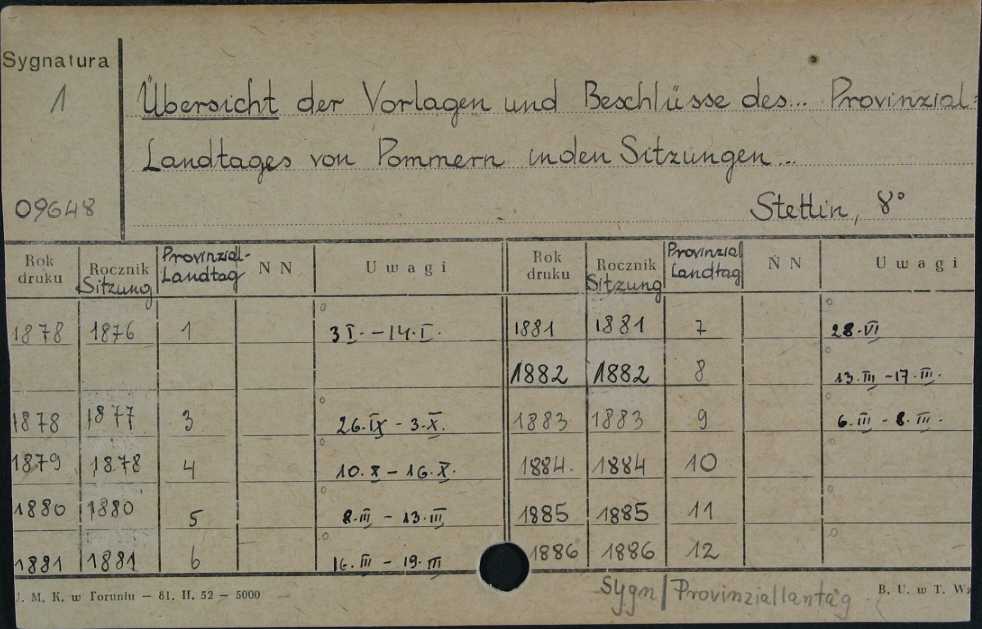 Sygnatura
1
Übersicht der Vorlagen und Beschlüsse des... Provinzial=
Landtages von Pommern in den Sitzungen...
09648
Stettin, 8°
Rok druku Rocznik Sitzung Provinzial-Landtag N N Uwagi Rok druku Rocznik Sitzung Provinzial Landtag N N Uwagi
1878 1876 1 3 I. - 14. I. 1881 1881 7 28. VI
1882 1882 8 13. III - 17. III.
1878 1877 3 26. IX - 3. X. 1883 1883 9 6. III - 8. III.
1879 1878 4 10. X - 16. X. 1884. 1884 10
1880 1880 5 8. III - 13. III 1885 1885 11
1881 1881 6 16. III - 19. III 1886 1886 12
J. M. K. w Toruniu — 81. II. 52 — 5000
Sygn/Provinziallantag
B. U. w T.